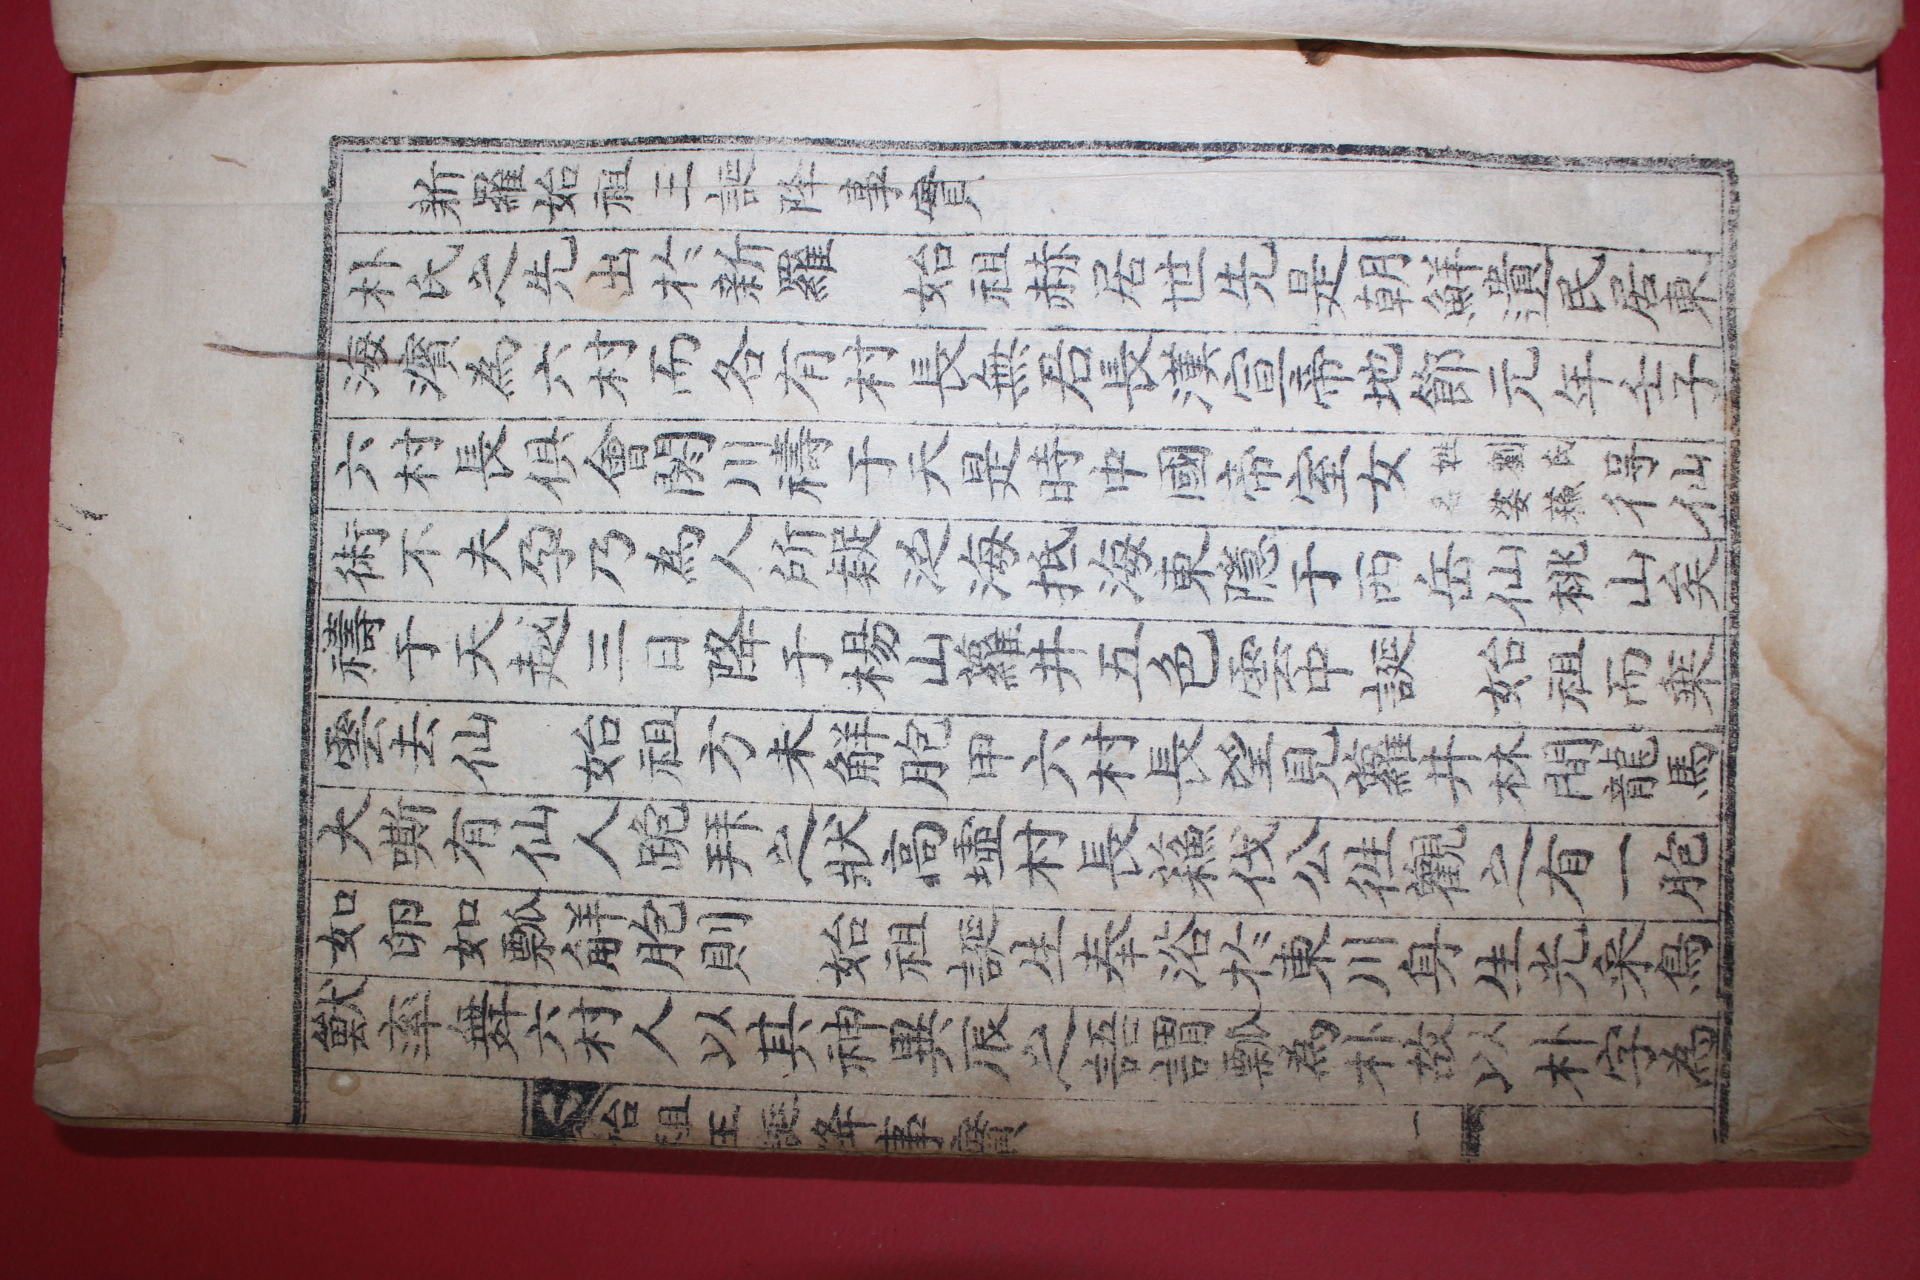 新羅始祖王誕降事實
朴氏之先出於新羅 始祖赫居世先是朝鮮遺民居東
海濱爲六村而各有村長無君長漢宣帝地節元年壬子
六村長俱會閼川禱于天是時中國帝室女 劉氏 婆蘇 得仙
術不夫孕乃爲人所疑泛海抵海東隱于西岳仙桃山矣
禱于天越三日降于楊山蘿井五色雲中誕 始祖而乘
雲去仙 始祖方未解胞甲六村長望見蘿井林間龍馬
大嘶有仙人跪拜之狀高墟村長蘇伐公徃觀之有一胞
如卵如瓢觧胞則 始祖誕生奉浴於東川身生光采鳥
獸率舞六村人以其神異辰之語謂瓢爲朴故以朴字爲
始祖王誕降事實 一